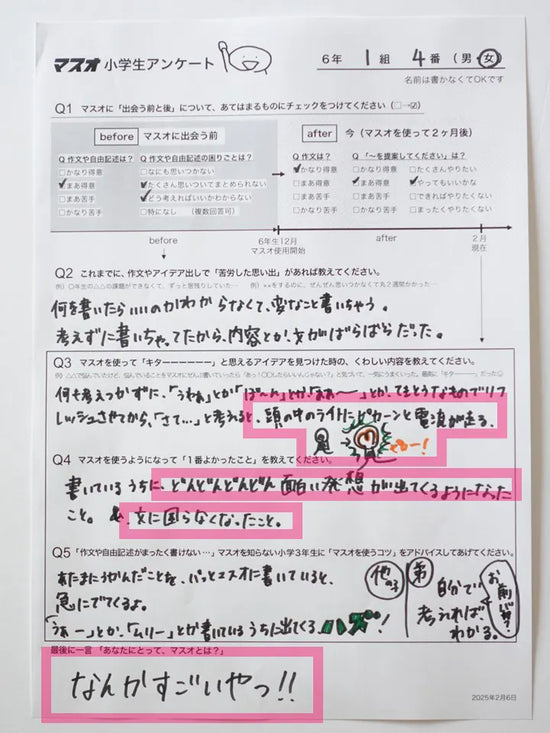 マスオ 小学生アンケート
6年 1組 4番 (男・女)
名前は書かなくてOKです
Q1 マスオに「出会う前と後」について、あてはまるものにチェックをつけてください(□→☑)
before マスオに出会う前
Q 作文や自由記述は?
□かなり得意
☑まあ得意
□まあ苦手
□かなり苦手
Q 作文や自由記述の困りごとは?
□なにも思いつかない
☑たくさん思いついてまとめられない
☑どう考えればいいかわからない
□特になし (複数回答可)
after 今(マスオを使って2ヶ月後)
Q 作文は?
☑かなり得意
□まあ得意
□まあ苦手
□かなり苦手
Q 「〜を提案してください」は?
□かなり得意
☑まあ得意
□まあ苦手
□かなり苦手
□たくさんやりたい
☑やってもいいかな
□できればやりたくない
□まったくやりたくない
before
6年生12月
マスオ使用開始
after
2月
現在
Q2 これまでに、作文やアイデア出しで「苦労した思い出」があれば教えてください。
例)〇年生の△△の課題ができなくて、ずっと居残りしていた… 例)××をするのに、ぜんぜん思いつかなくて丸2週間かかった…
何を書いたらいいのかわからなくて、変なこと書いちゃう。
考えずに書いちゃってたから、内容とか、文がばらばらだった。
Q3 マスオを使って「キターーーーーー」と思えるアイデアを見つけた時の、くわしい内容を教えてください。
何も考えつかずに、「うわぁ」とか「ば〜ん」とか「あぁ〜」とか、てきとうなものでリフ
レッシュさせてから、「さて…」と考えると、頭の中のライトにピカーンと電流が走る。
Q4 マスオを使うようになって「1番よかったこと」を教えてください。
書いているうちに、どんどんどんどん面白い発想が出てくるようになった
こと。
文に困らなくなったこと。
Q5 「作文や自由記述がまったく書けない…」マスオを知らない小学3年生に「マスオを使うコツ」をアドバイスしてあげてください。
あたまにうかんだことを、パッとマスオに書いていると、
急にでてくるよ。
「うぁー」とか、「ムリー」とか書いているうちに出てくるハズ!
他の子
弟
自分で
考えればわかる。
最後に一言 「あなたにとって、マスオとは?」
なんかすごいやつ!!
2025年2月6日